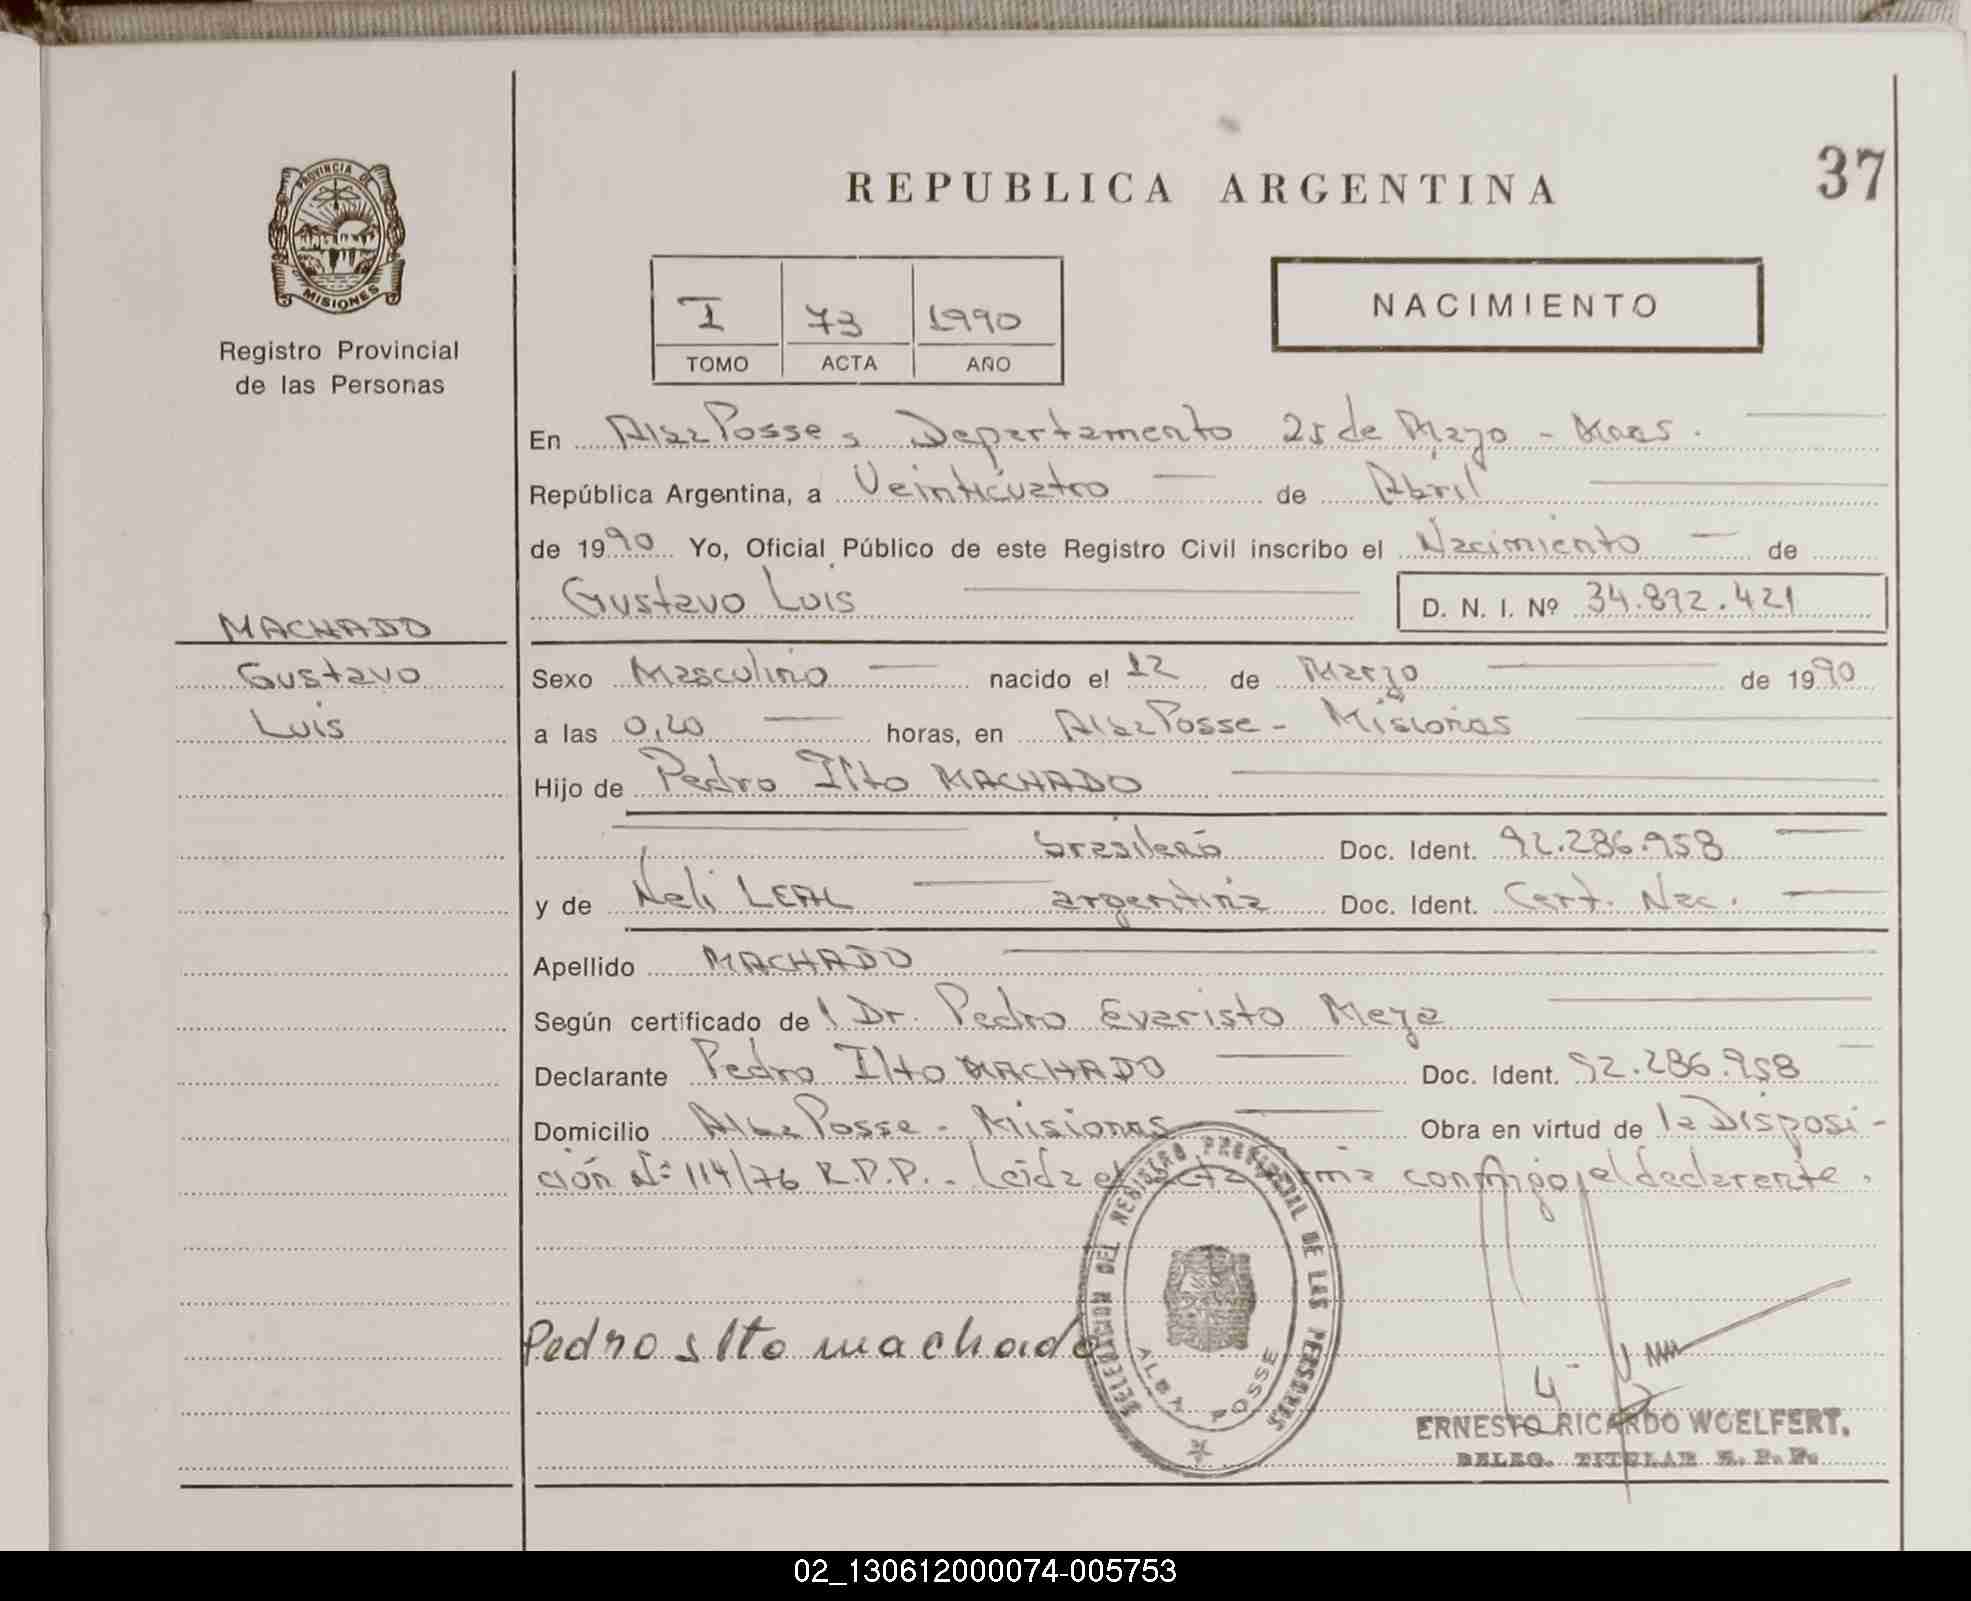 PROVINCIA DE
MISIONES
Registro Provincial
de las Personas
MACHADO
Gustavo
Luis
37
REPUBLICA ARGENTINA
I 73 1990
TOMO ACTA AÑO
NACIMIENTO
En Alba Posse, Departamento 25 de Mayo -
República Argentina, a Veinticuatro de Abril
de 1990 Yo, Oficial Público de este Registro Civil inscribo el Nacimiento de
Gustavo Luis D. N. I. Nº 34.892.421
Sexo Masculino nacido el 12 de Marzo de 1990
a las 0,20 horas, en Alba Posse - Misiones
Hijo de Pedro Ilto MACHADO
brasilero Doc. Ident. 92.286.958
y de Neli LEAL argentina Doc. Ident. Cert. Nac.
Apellido MACHADO
Según certificado de l Dr. Pedro Evaristo Meza
Declarante Pedro Ilto MACHADO Doc. Ident. 92.286.958
Domicilio Alba Posse - Misiones Obra en virtud de la Disposi-
ción Nº 114/76 R.P.P. - Leída el acta firma conmigo, el declarente.
DELEGACION DEL REGISTRO PROVINCIAL DE LAS PERSONAS
ALBA POSSE
Pedro ilto machado
ERNESTO RICARDO WOELFERT.
DELEG. TITULAR R. P. P.
02_130612000074-005753